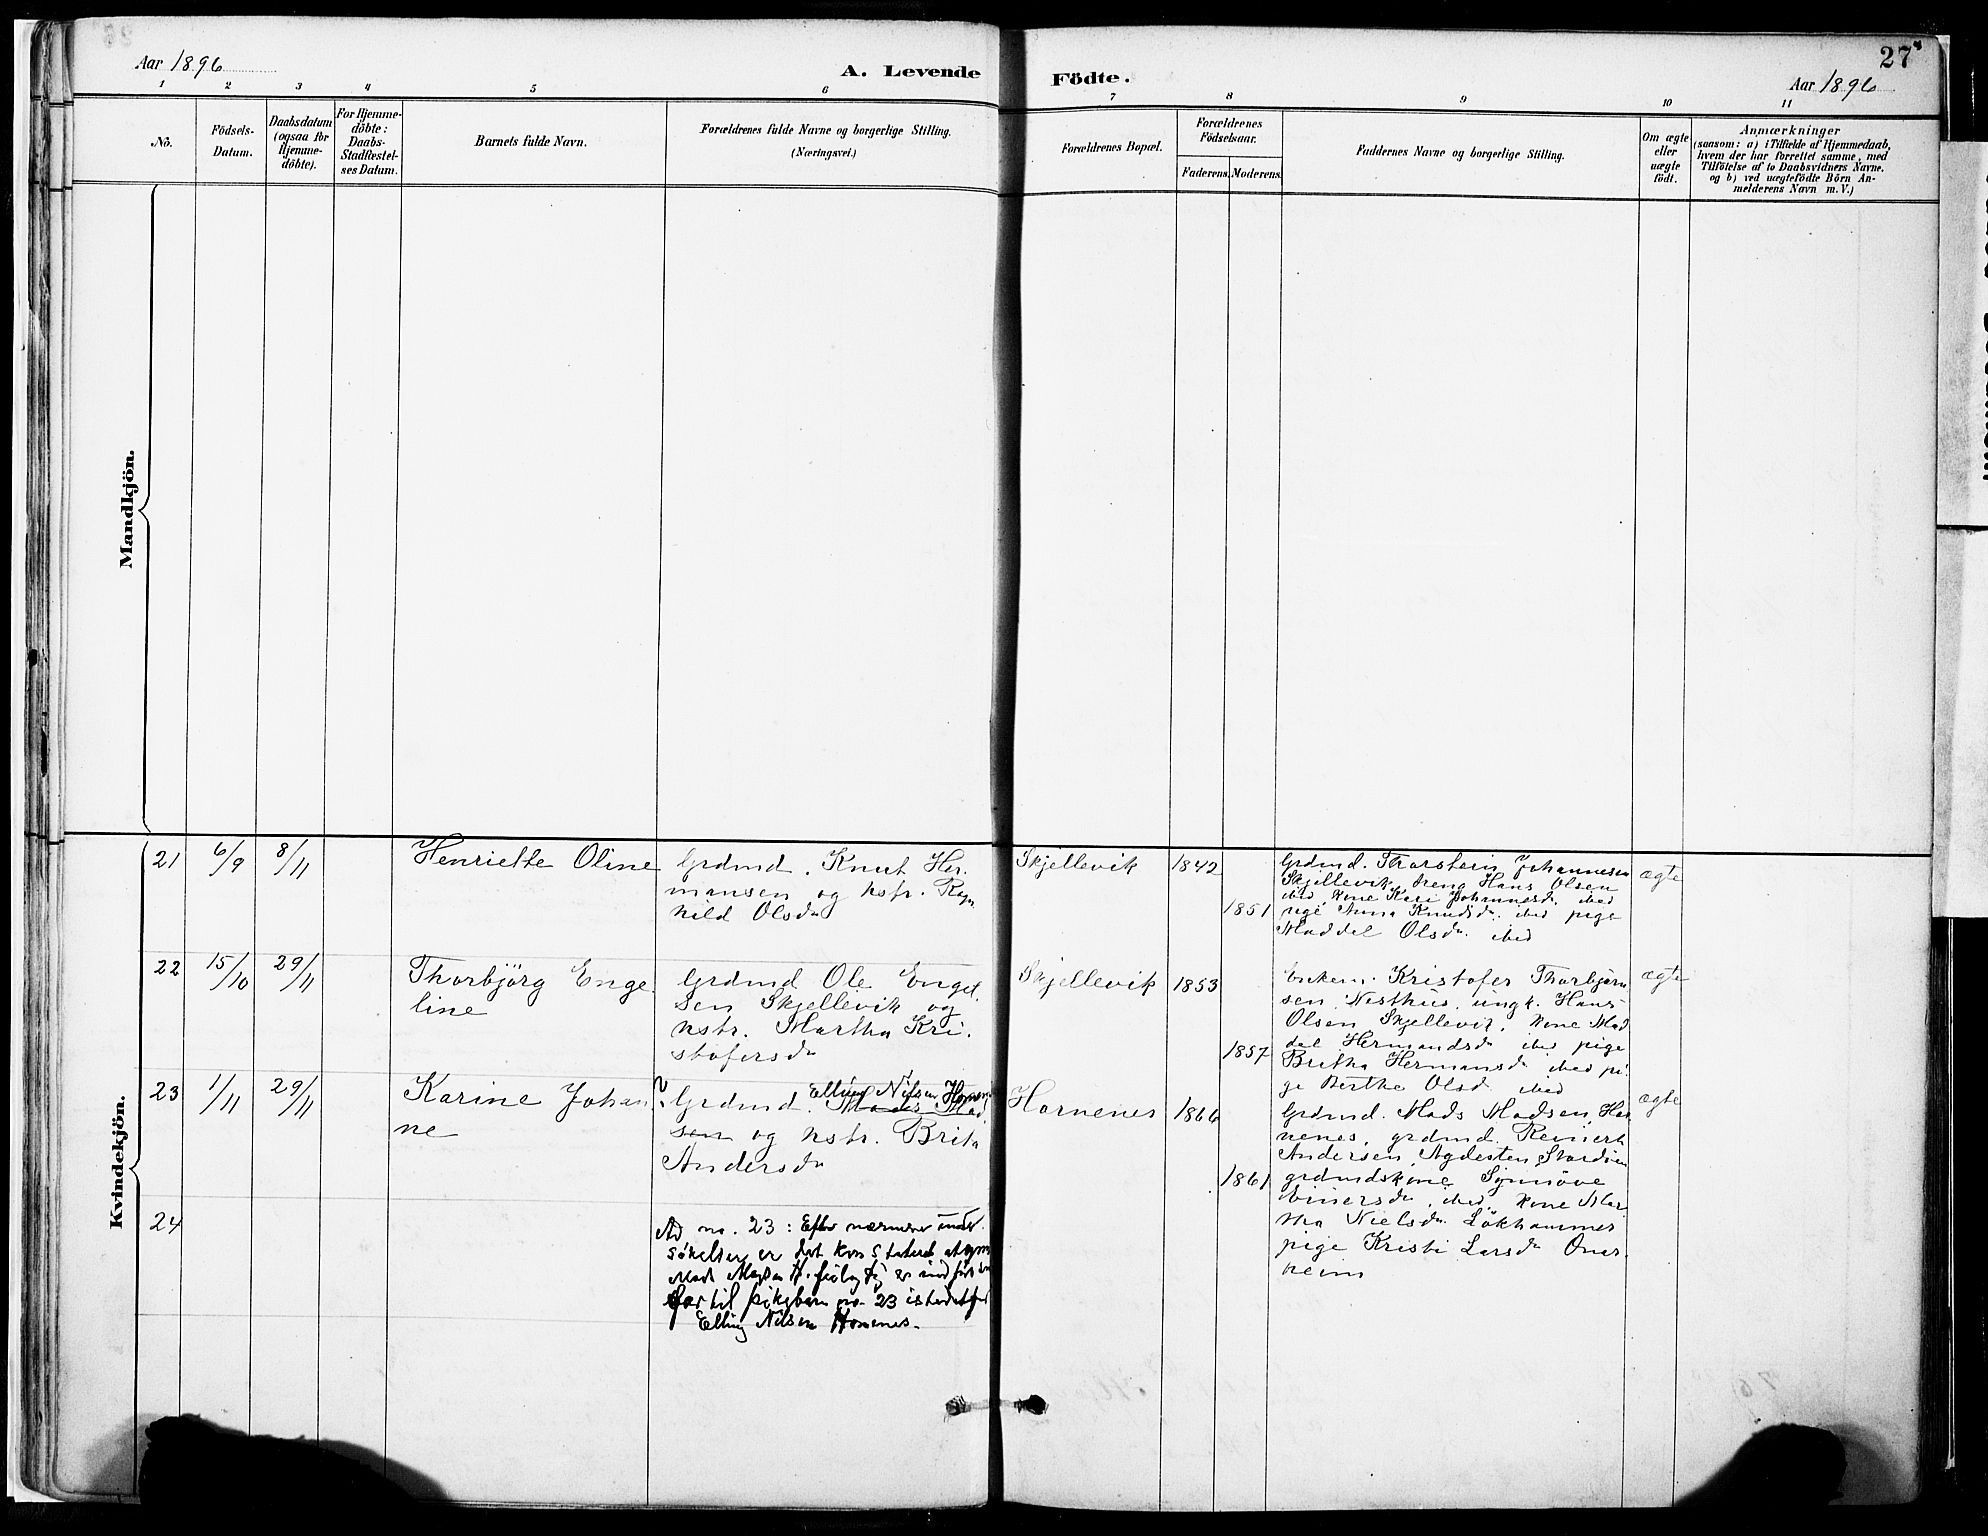 27
Aar 1896
A. Levende Födte.
Aar 1896
1 2 3 4 5 6 7 8 9 10 11
No.
Födsels-
Datum.
Daabsdatum
(ogsaa for
Hjemme-
döbte).
For Hjemme-
döbte:
Daabs-
Stadfestel-
ses Datum.
Barnets fulde Navn.
Forældrenes fulde Navne og borgerlige Stilling.
(Næringsvei.)
Forældrenes Bopæl.
Forældrenes
Födselsaar.
Faderens. Moderens.
Faddernes Navne og borgerlige Stilling.
Om ægte
eller
uægte
födt.
Anmærkninger
(saasom: a) i Tilfælde af Hjemmedaab,
hvem der har forrettet samme, med
Tilföielse af to Daabsvidners Navne.
og b) ved uægtefödte Börn An-
melderens Navn m. V.)
Mandkjön.
Kvindekjön.
21
6/9
8/11
Henriette Oline
Grdmd. Knut Her.
mansen og kstr. Ragn
hild Olsdr
Skjellevik
1842
1851
Grdmd. Thorstein Johannesen
Skjellevik, Hans Olsen
ibid, Kone Kari Johannesdr. ibid
pige Anna Knudsdr. ibid pige
Maddel Olsdr. ibid
ægte
22
15/10
29/11
Thorbjörg Enge
line
Grdmd Ole Engel
sen Skjellevik og
kstr. Martha Kri.
stofersdr
Skjellevik
1853
1857
Enkem. Kristofer Thorbjörn
sen Nesthus, ungk. Hans
Olsen Skjellevik, Kone Mad
del Hermandsdr ibid pige
Britha Hermansdr ibid pi
ge Berthe Olsd. ibid
ægte
23
1/11
29/11
Karine Johan
ne
? Elling Nilsen Hornenes
Grdmd. Mads Mad
sen og kstr. Brita
Andersdr
Hornenes
1866
1861
Grdmd. Mads Madsen Hor
nenes, grdmd. Reinert
Andersen, Agdesten, Stordöen
grdmdskone Synnöve
Einersdr. ibid, Kone Mar
tha Nielsdr Lökhammer
pige Kristi Larsdr Onar
heim
ægte
24
Ad no. 23: Efter nærmere under
sökelser er det konstateret at grm
Mads Madsen H. feilagtig er indfört som
far til pikebarn no. 23 istedetfor
Elling Nilsen Hornenes.